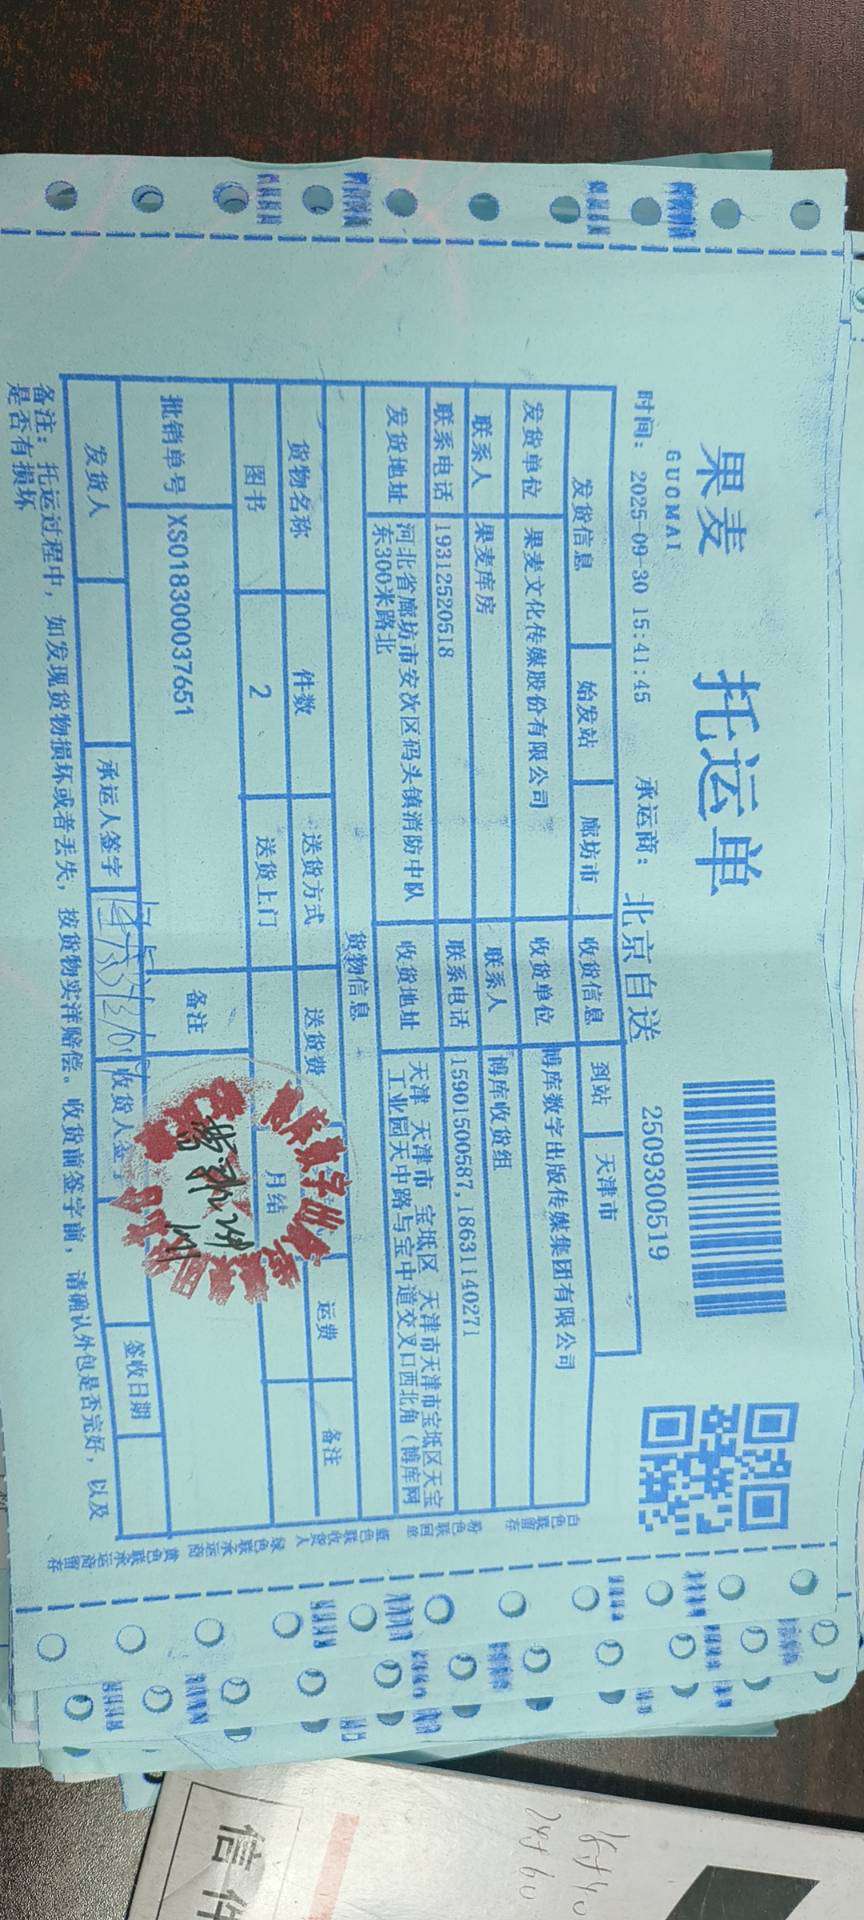 果麦
GUOMAI
托运单
时间： 2025-09-30 15:41:45 承运商： 北京自送 2509300519
发货信息 始发站 廊坊市 收货信息 到站 天津市
发货单位 果麦文化传媒股份有限公司 收货单位 博库数字出版传媒集团有限公司
联系人 果麦库房 联系人 博库收货组
联系电话 19312520518 联系电话 15901500587,18631140271
发货地址 河北省廊坊市安次区码头镇消防中队东300米路北 收货地址 天津 天津市 宝坻区 天津市天津市宝坻区天宝工业园天中路与宝中道交叉口西北角（博库网
货物信息
货物名称 件数 送货方式 送货费 运费 备注
图书 2 送货上门 月结
批销单号 XS018300037651 备注
发货人 承运人签字 收货人签字 签收日期
备注：托运过程中，如发现货物损坏或者丢失，按货物实洋赔偿。收货前签字前，请确认外包是否完好，以及
是否有损坏
白色联留存 粉色联回单 蓝色联收货人 绿色联承运商 黄色联承运商留存
信件